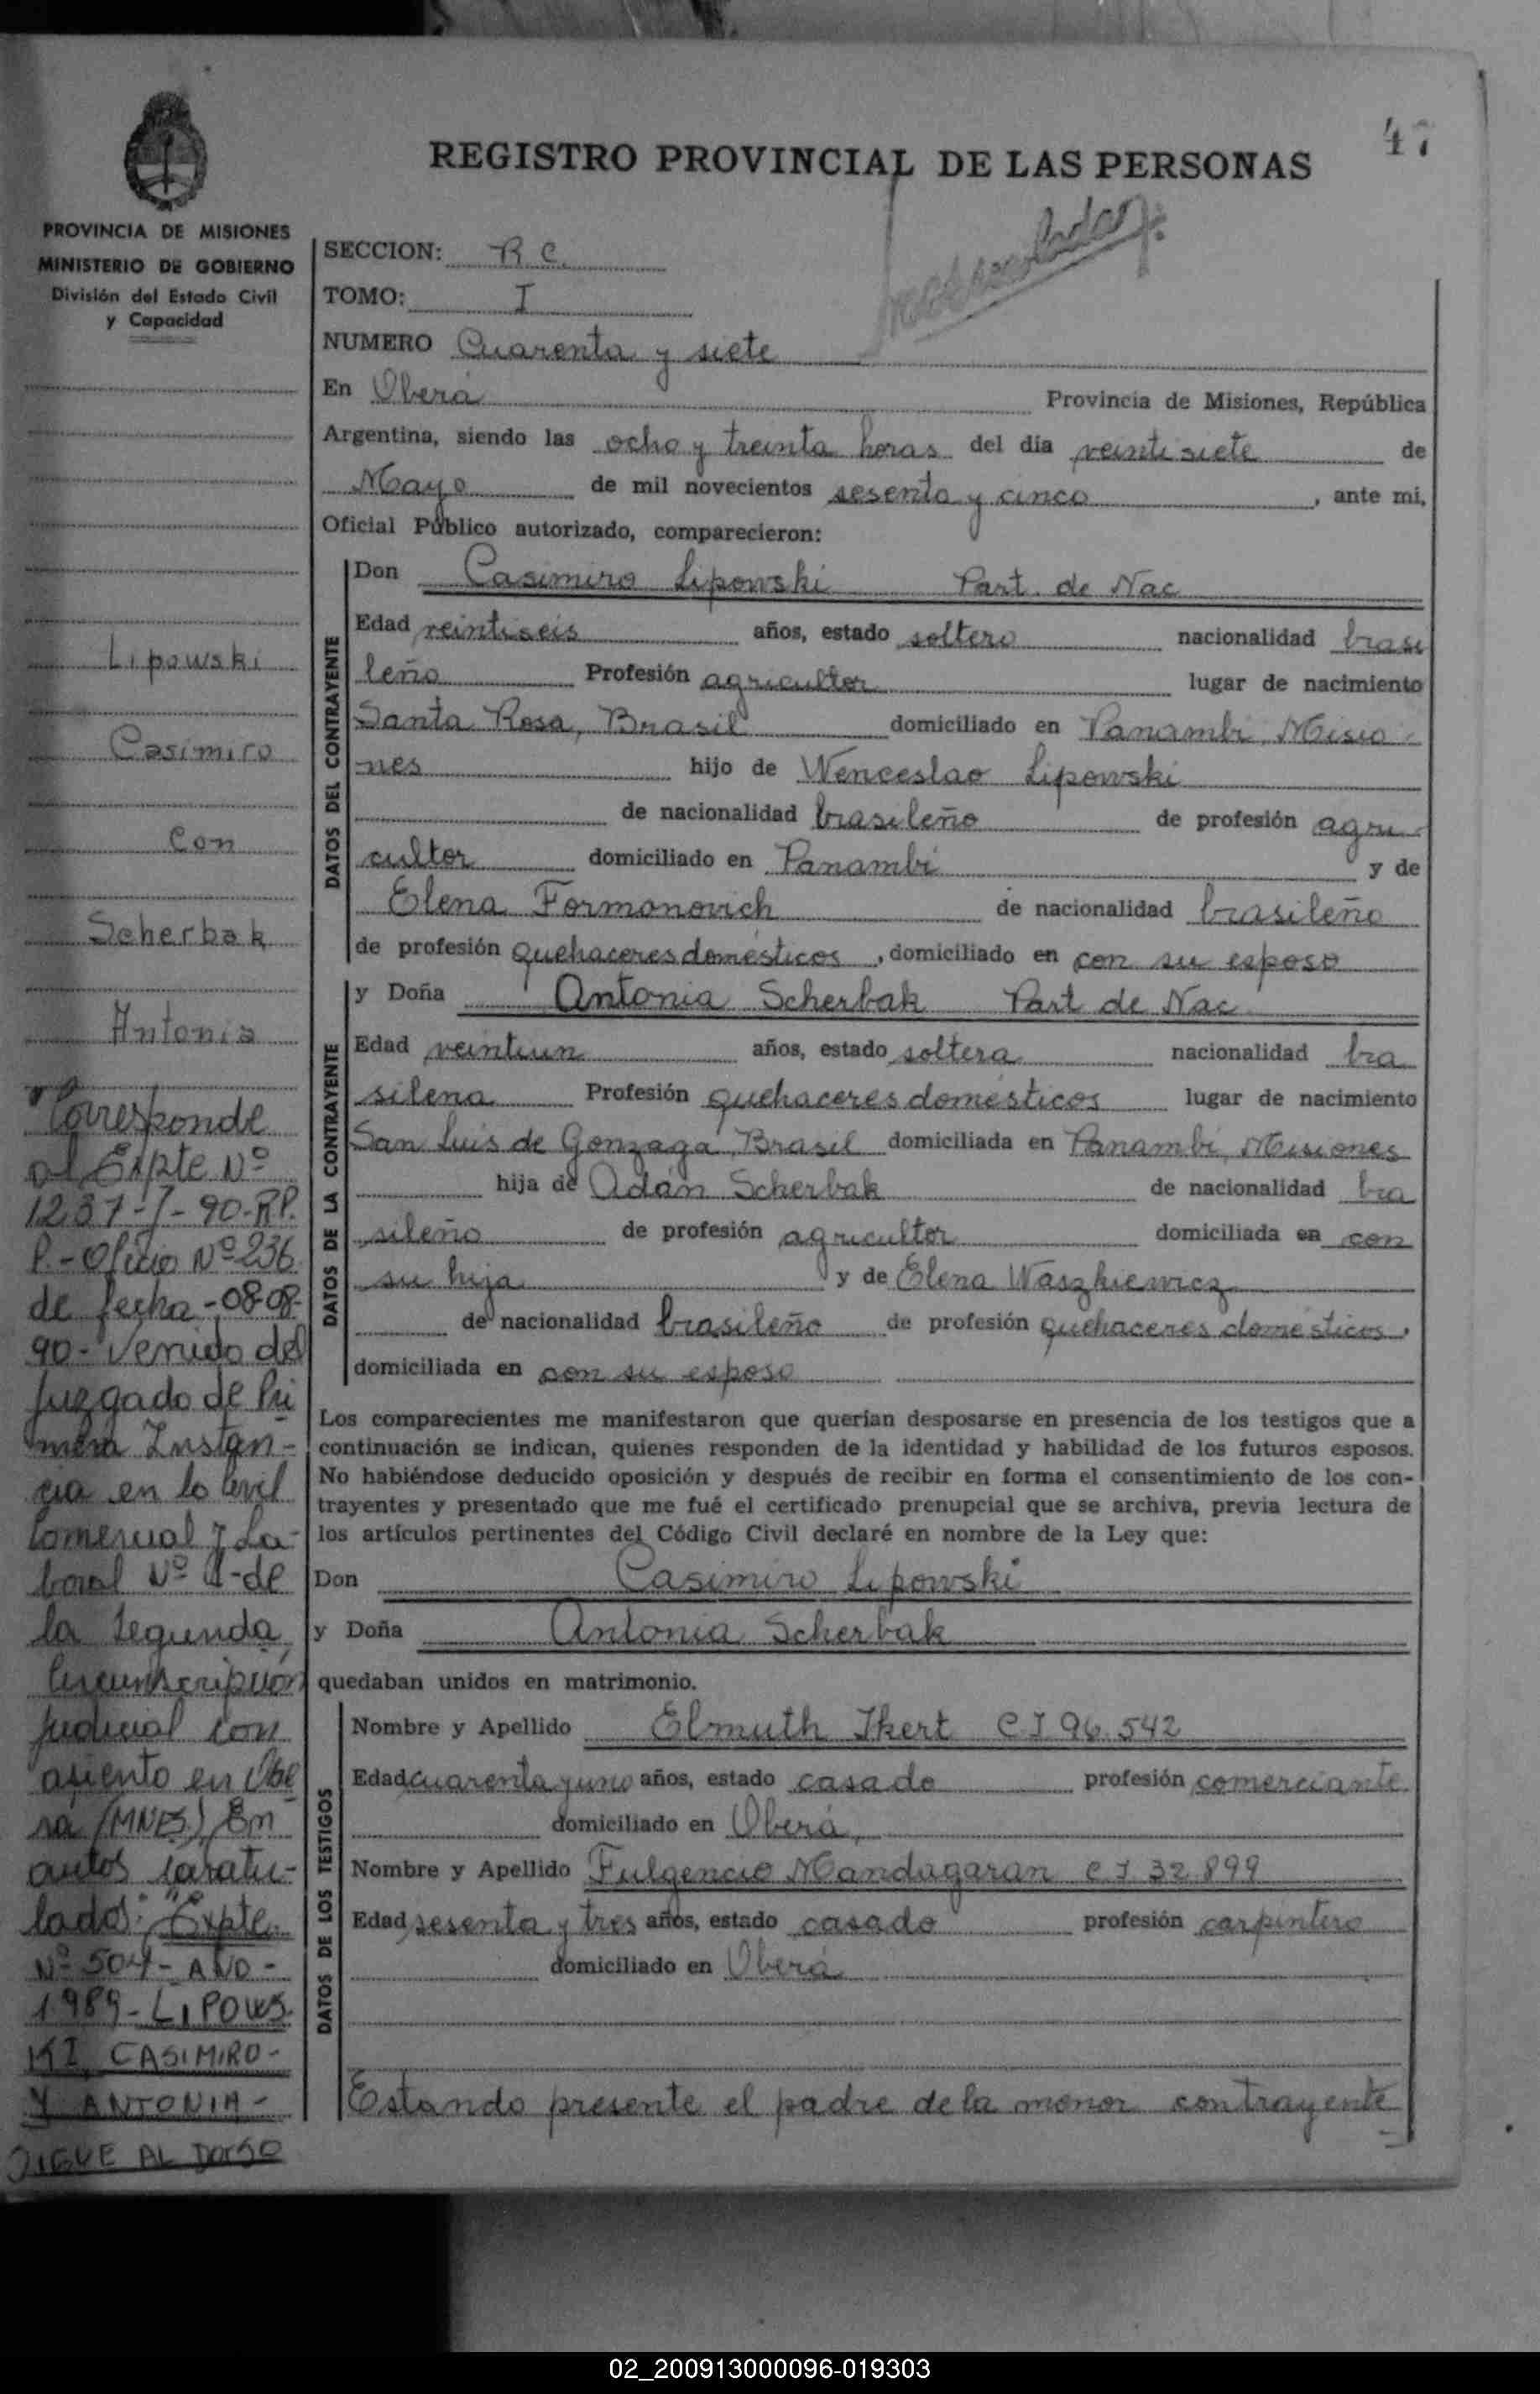 47
REGISTRO PROVINCIAL DE LAS PERSONAS
PROVINCIA DE MISIONES
MINISTERIO DE GOBIERNO
División del Estado Civil
y Capacidad
Lipowski
Casimiro
Con
Scherbak
Antonia
Corresponde
al Expte Nº
1237-7-90-RP.
P.-Oficio Nº 236
de fecha -08-08-
90- Venido del
Juzgado de Pri
mera Instan-
cia en lo Civil
Comercial y La-
boral Nº 1-de
la Segunda
Circunscripción
Judicial con
asiento en Obe
rá (MNES) En
autos caratu-
lados: "Expte.
Nº 504- AÑO-
1989- LIPOWS
KI CASIMIRO-
Y ANTONIA-
SIGUE AL DORSO
SECCION: R C.
TOMO: I
NUMERO Cuarenta y siete
En Oberá Provincia de Misiones, República
Argentina, siendo las ocho y treinta horas del día veintisiete de
Mayo de mil novecientos sesenta y cinco, ante mi,
Oficial Público autorizado, comparecieron:
DATOS DEL CONTRAYENTE
Don Casimiro Lipowski Part. de Nac
Edad veintiseis años, estado soltero nacionalidad brasi
leño Profesión agricultor lugar de nacimiento
Santa Rosa, Brasil domiciliado en Panambi, Misio
nes hijo de Wenceslao Lipowski
de nacionalidad brasileño de profesión agri
cultor domiciliado en Panambi y de
Elena Formanovich de nacionalidad brasileño
de profesión quehaceres domésticos, domiciliado en con su esposo
DATOS DE LA CONTRAYENTE
y Doña Antonia Scherbak Part de Nac
Edad veintiun años, estado soltera nacionalidad bra
silena Profesión quehaceres domésticos lugar de nacimiento
San Luis de Gonzaga, Brasil domiciliada en Panambi, Misiones
hija de Adán Scherbak de nacionalidad bra
sileño de profesión agricultor domiciliada en con
su hija y de Elena Waszkiewicz
de nacionalidad brasileño de profesión quehaceres domésticos,
domiciliada en con su esposo
Los comparecientes me manifestaron que querían desposarse en presencia de los testigos que a
continuación se indican, quienes responden de la identidad y habilidad de los futuros esposos.
No habiéndose deducido oposición y después de recibir en forma el consentimiento de los con-
trayentes y presentado que me fué el certificado prenupcial que se archiva, previa lectura de
los artículos pertinentes del Código Civil declaré en nombre de la Ley que:
Don Casimiro Lipowski
y Doña Antonia Scherbak
quedaban unidos en matrimonio.
DATOS DE LOS TESTIGOS
Nombre y Apellido Elmuth Ikert C I 96.542
Edad cuarenta y uno años, estado casado profesión comerciante
domiciliado en Oberá,
Nombre y Apellido Fulgencio Mandagaran C I 32.899
Edad sesenta y tres años, estado casado profesión carpintero
domiciliado en Oberá
Estando presente el padre de la menor contrayente
02_200913000096-019303